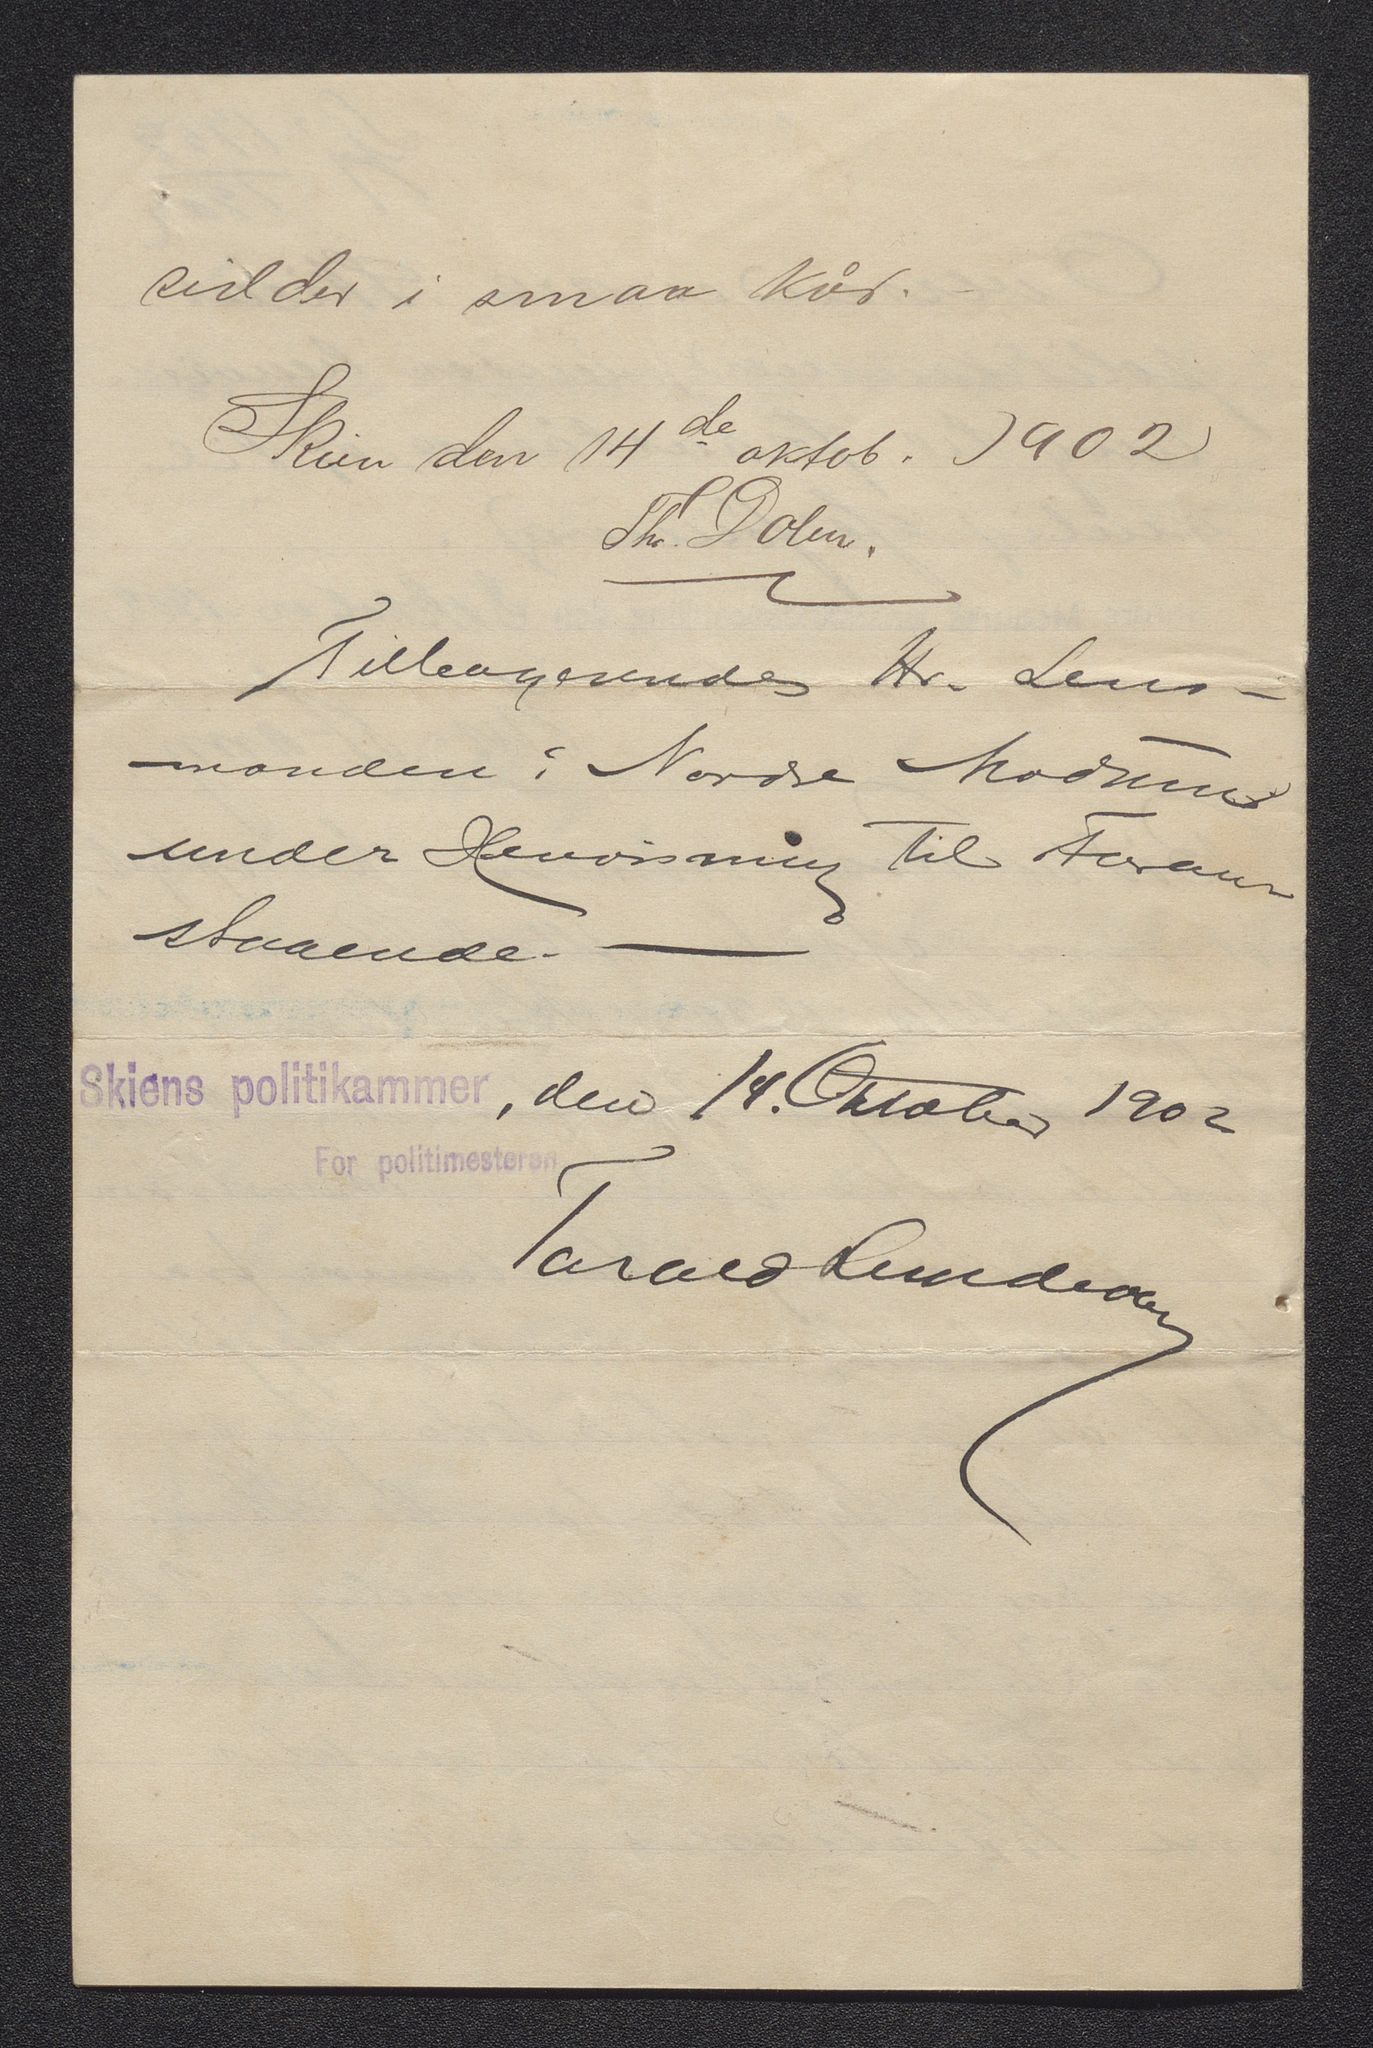 sidder i smaa kår. -
Skien den 14de oktob. 1902
Th. Dolen.
Tilbagesendes Hr. Lens-
manden i Nordre Modum
under Henvisning til Foran-
staaende. —
Skiens politikammer, den 14. Oktober 1902
For politimesteren
Tarald Lunde